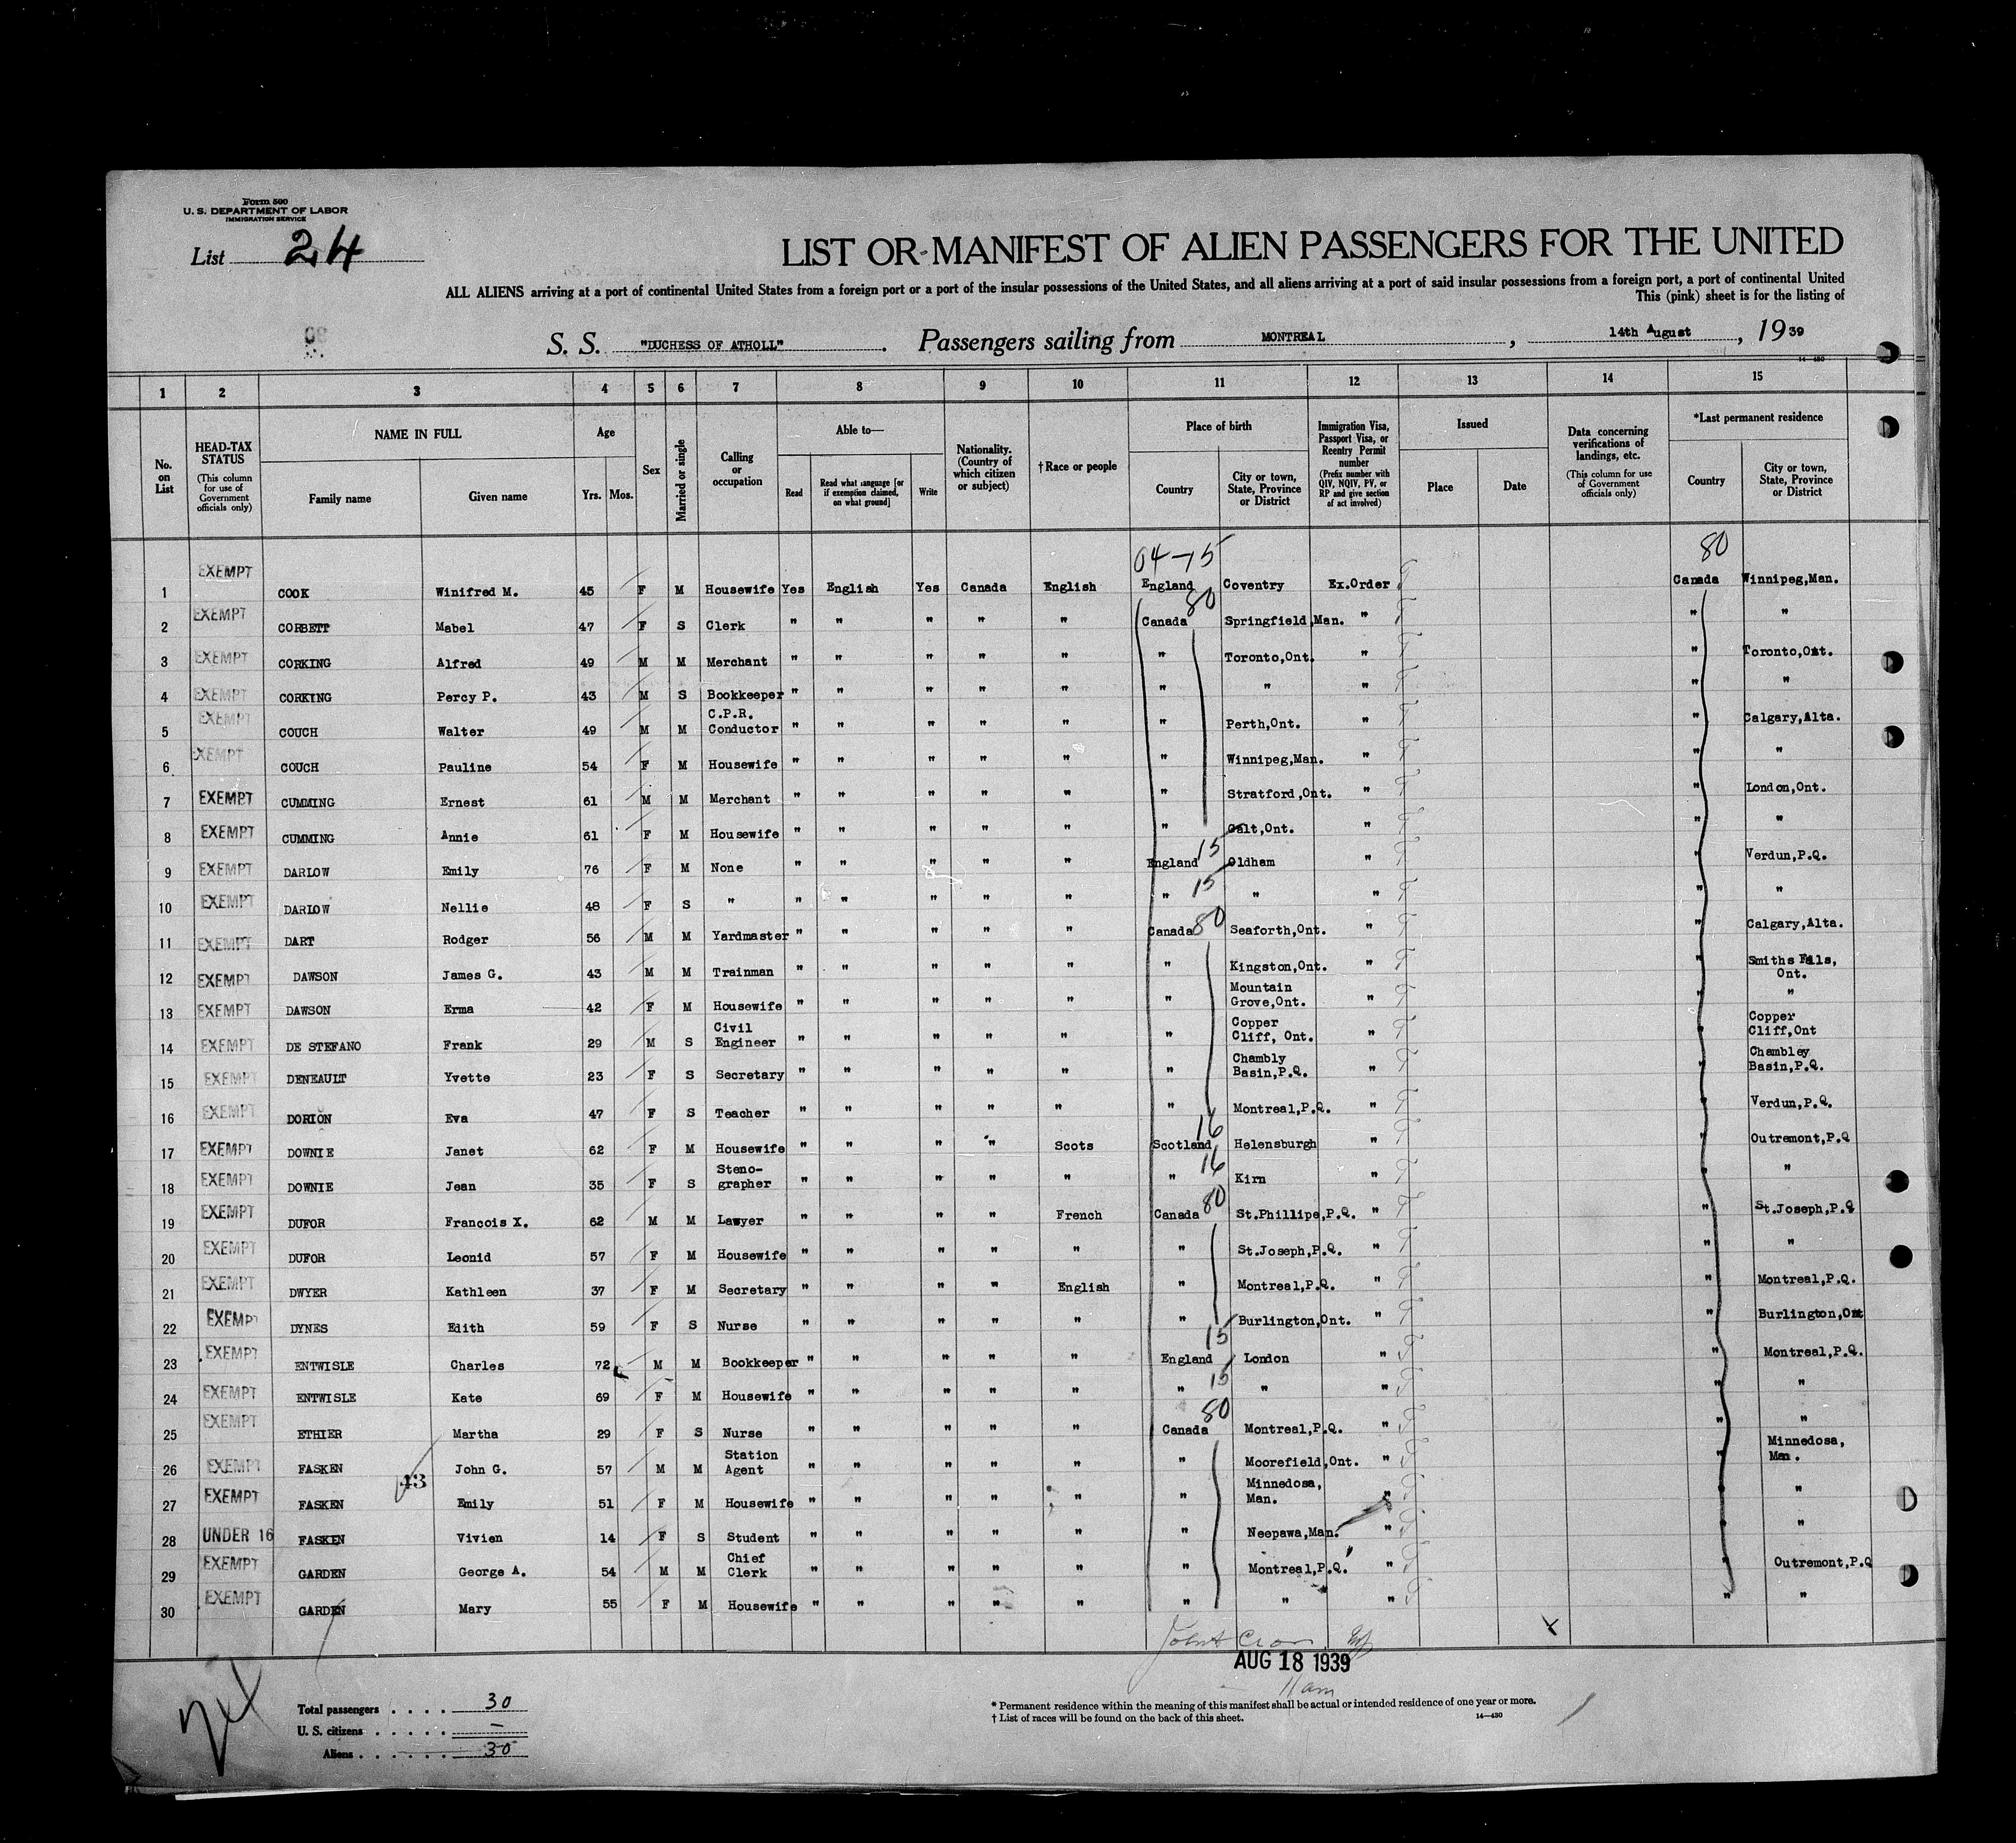 Form 500
U. S. DEPARTMENT OF LABOR
IMMIGRATION SERVICE
List 24
LIST OR MANIFEST OF ALIEN PASSENGERS FOR THE UNITED
ALL ALIENS arriving at a port of continental United States from a foreign port or a port of the insular possessions of the United States, and all aliens arriving at a port of said insular possessions from a foreign port, a port of continental United
This (pink) sheet is for the listing of
S. S. "DUCHESS OF ATHOLL" . Passengers sailing from MONTREAL , 14th August , 1939
14-430
1 2 3 4 5 6 7 8 9 10 11 12 13 14 15
No. on List
HEAD-TAX STATUS (This column for use of Government officials only)
NAME IN FULL
Family name Given name
Age
Yrs. Mos.
Sex
Married or single
Calling or occupation
Able to—
Read
Read what language [or if exemption claimed, on what ground]
Write
Nationality. (Country of which citizen or subject)
†Race or people
Place of birth
Country
City or town, State, Province or District
Immigration Visa, Passport Visa, or Reentry Permit number (Prefix number with QIV, NQIV, PV, or RP and give section of act involved)
Issued
Place Date
Data concerning verifications of landings, etc. (This column for use of Government officials only)
*Last permanent residence
Country
City or town, State, Province or District
04-75 80
1 EXEMPT COOK Winifred M. 45 F M Housewife Yes English Yes Canada English England Coventry Ex.Order Canada Winnipeg,Man.
2 EXEMPT CORBETT Mabel 47 F S Clerk " " " " " Canada 80 Springfield,Man. " " "
3 EXEMPT CORKING Alfred 49 M M Merchant " " " " " " Toronto,Ont. " " Toronto,Ont.
4 EXEMPT CORKING Percy P. 43 M S Bookkeeper " " " " " " " " " "
5 EXEMPT COUCH Walter 49 M M C.P.R. Conductor " " " " " " Perth,Ont. " " Calgary,Alta.
6 EXEMPT COUCH Pauline 54 F M Housewife " " " " " " Winnipeg,Man. " " "
7 EXEMPT CUMMING Ernest 61 M M Merchant " " " " " " Stratford,Ont. " " London,Ont.
8 EXEMPT CUMMING Annie 61 F M Housewife " " " " " " Galt,Ont. " " "
9 EXEMPT DARLOW Emily 76 F M None " " " " " England 15 Oldham " " Verdun,P.Q.
10 EXEMPT DARLOW Nellie 48 F S " " " " " " " 15 " " " "
11 EXEMPT DART Rodger 56 M M Yardmaster " " " " " Canada 80 Seaforth,Ont. " " Calgary,Alta.
12 EXEMPT DAWSON James G. 43 M M Trainman " " " " " " Kingston,Ont. " " Smiths Fals, Ont.
13 EXEMPT DAWSON Erma 42 F M Housewife " " " " " " Mountain Grove,Ont. " " "
14 EXEMPT DE STEFANO Frank 29 M S Civil Engineer " " " " " " Copper Cliff, Ont. " " Copper Cliff,Ont
15 EXEMPT DENEAULT Yvette 23 F S Secretary " " " " " " Chambly Basin,P.Q. " " Chambley Basin,P.Q.
16 EXEMPT DORION Eva 47 F S Teacher " " " " " " Montreal,P.Q. " " Verdun,P.Q.
17 EXEMPT DOWNIE Janet 62 F M Housewife " " " " Scots Scotland 16 Helensburgh " " Outremont,P.Q
18 EXEMPT DOWNIE Jean 35 F S Steno- grapher " " " " " " 16 Kirn " " "
19 EXEMPT DUFOR Francois X. 62 M M Lawyer " " " " French Canada 80 St.Phillipe,P.Q. " " St.Joseph,P.Q
20 EXEMPT DUFOR Leonid 57 F M Housewife " " " " " " St.Joseph,P.Q. " " "
21 EXEMPT DWYER Kathleen 37 F M Secretary " " " " English " Montreal,P.Q. " " Montreal,P.Q.
22 EXEMPT DYNES Edith 59 F S Nurse " " " " " " Burlington,Ont. " " Burlington,Ont
23 EXEMPT ENTWISLE Charles 72 M M Bookkeeper " " " " " England 15 London " " Montreal,P.Q.
24 EXEMPT ENTWISLE Kate 69 F M Housewife " " " " " " 15 " " " "
25 EXEMPT ETHIER Martha 29 F S Nurse " " " " " Canada 80 Montreal,P.Q. " " "
26 EXEMPT FASKEN John G. 57 M M Station Agent " " " " " " Moorefield,Ont. " " Minnedosa, Man.
27 EXEMPT FASKEN 43 Emily 51 F M Housewife " " " " " " Minnedosa, Man. " " "
28 UNDER 16 FASKEN Vivien 14 F S Student " " " " " " Neepawa,Man. " " "
29 EXEMPT GARDEN George A. 54 M M Chief Clerk " " " " " " Montreal,P.Q. " " Outremont,P.Q
30 EXEMPT GARDEN Mary 55 F M Housewife " " " " " " " " " "
AUG 18 1939
11am
Total passengers . . . . 30
U. S. citizens . . . . . —
Aliens . . . . . . 30
* Permanent residence within the meaning of this manifest shall be actual or intended residence of one year or more.
† List of races will be found on the back of this sheet.
14—430